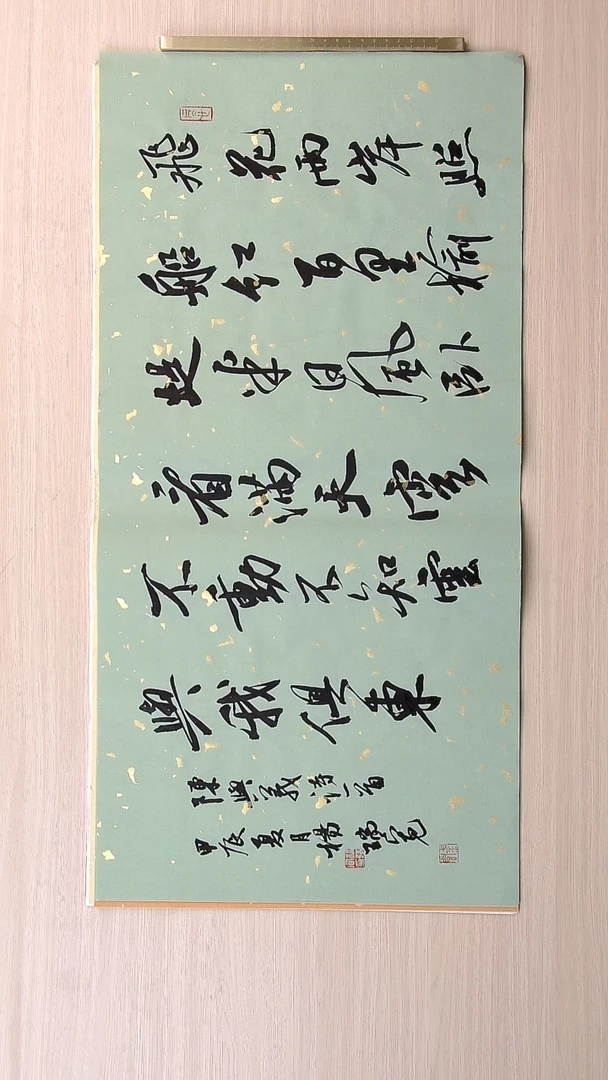 飛花兩岸照
船紅百里榆
堤半日風臥
看滿天雲
不動不知雲
與我俱東
陳與義詩一首
甲辰夏月楊